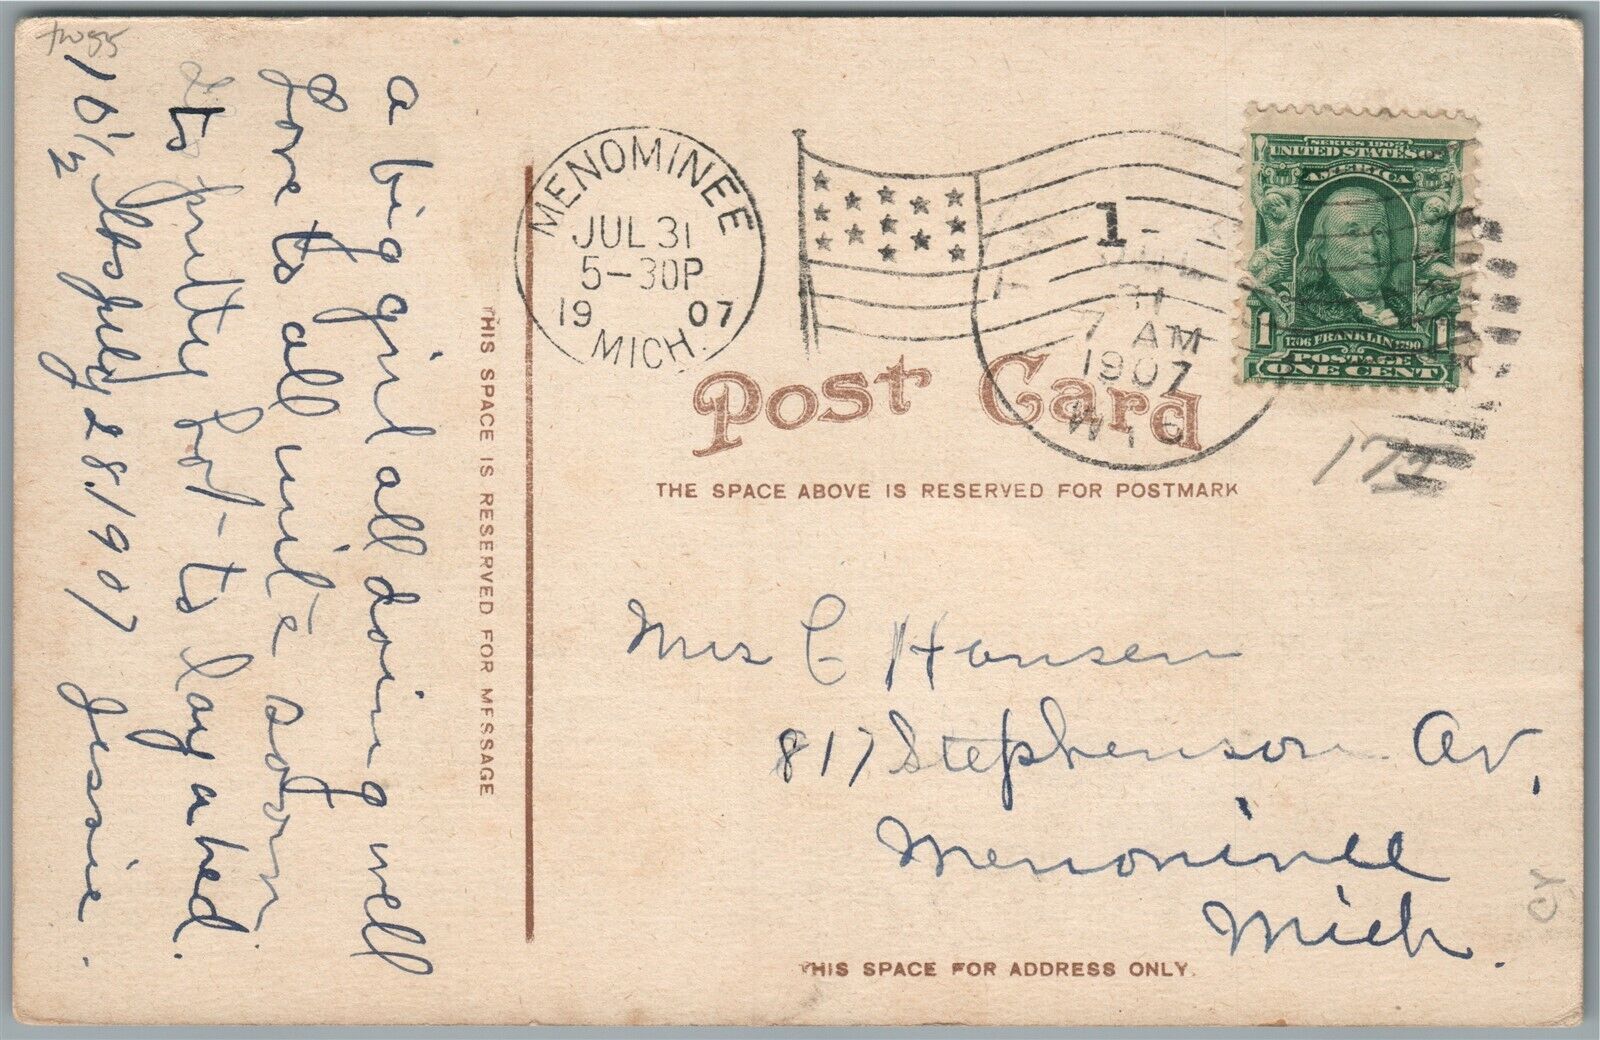 a big girl all doing well
Love to all write soon
Its pretty hot - to lay abed.
10 1/2 lbs July 28, 1907 Jessie.
THIS SPACE IS RESERVED FOR MESSAGE
MENOMINEE
JUL 31
5-30P
1907
MICH.
1-
JUL
31
7 AM
1907
WIS
SERIES 1902
UNITED STATES OF
AMERICA
1706 FRANKLIN 1790
1 POSTAGE 1
ONE CENT
Post Card
THE SPACE ABOVE IS RESERVED FOR POSTMARK
Mrs C Hansen
817 Stephenson Av,
Menominee
Mich.
THIS SPACE FOR ADDRESS ONLY.
CY